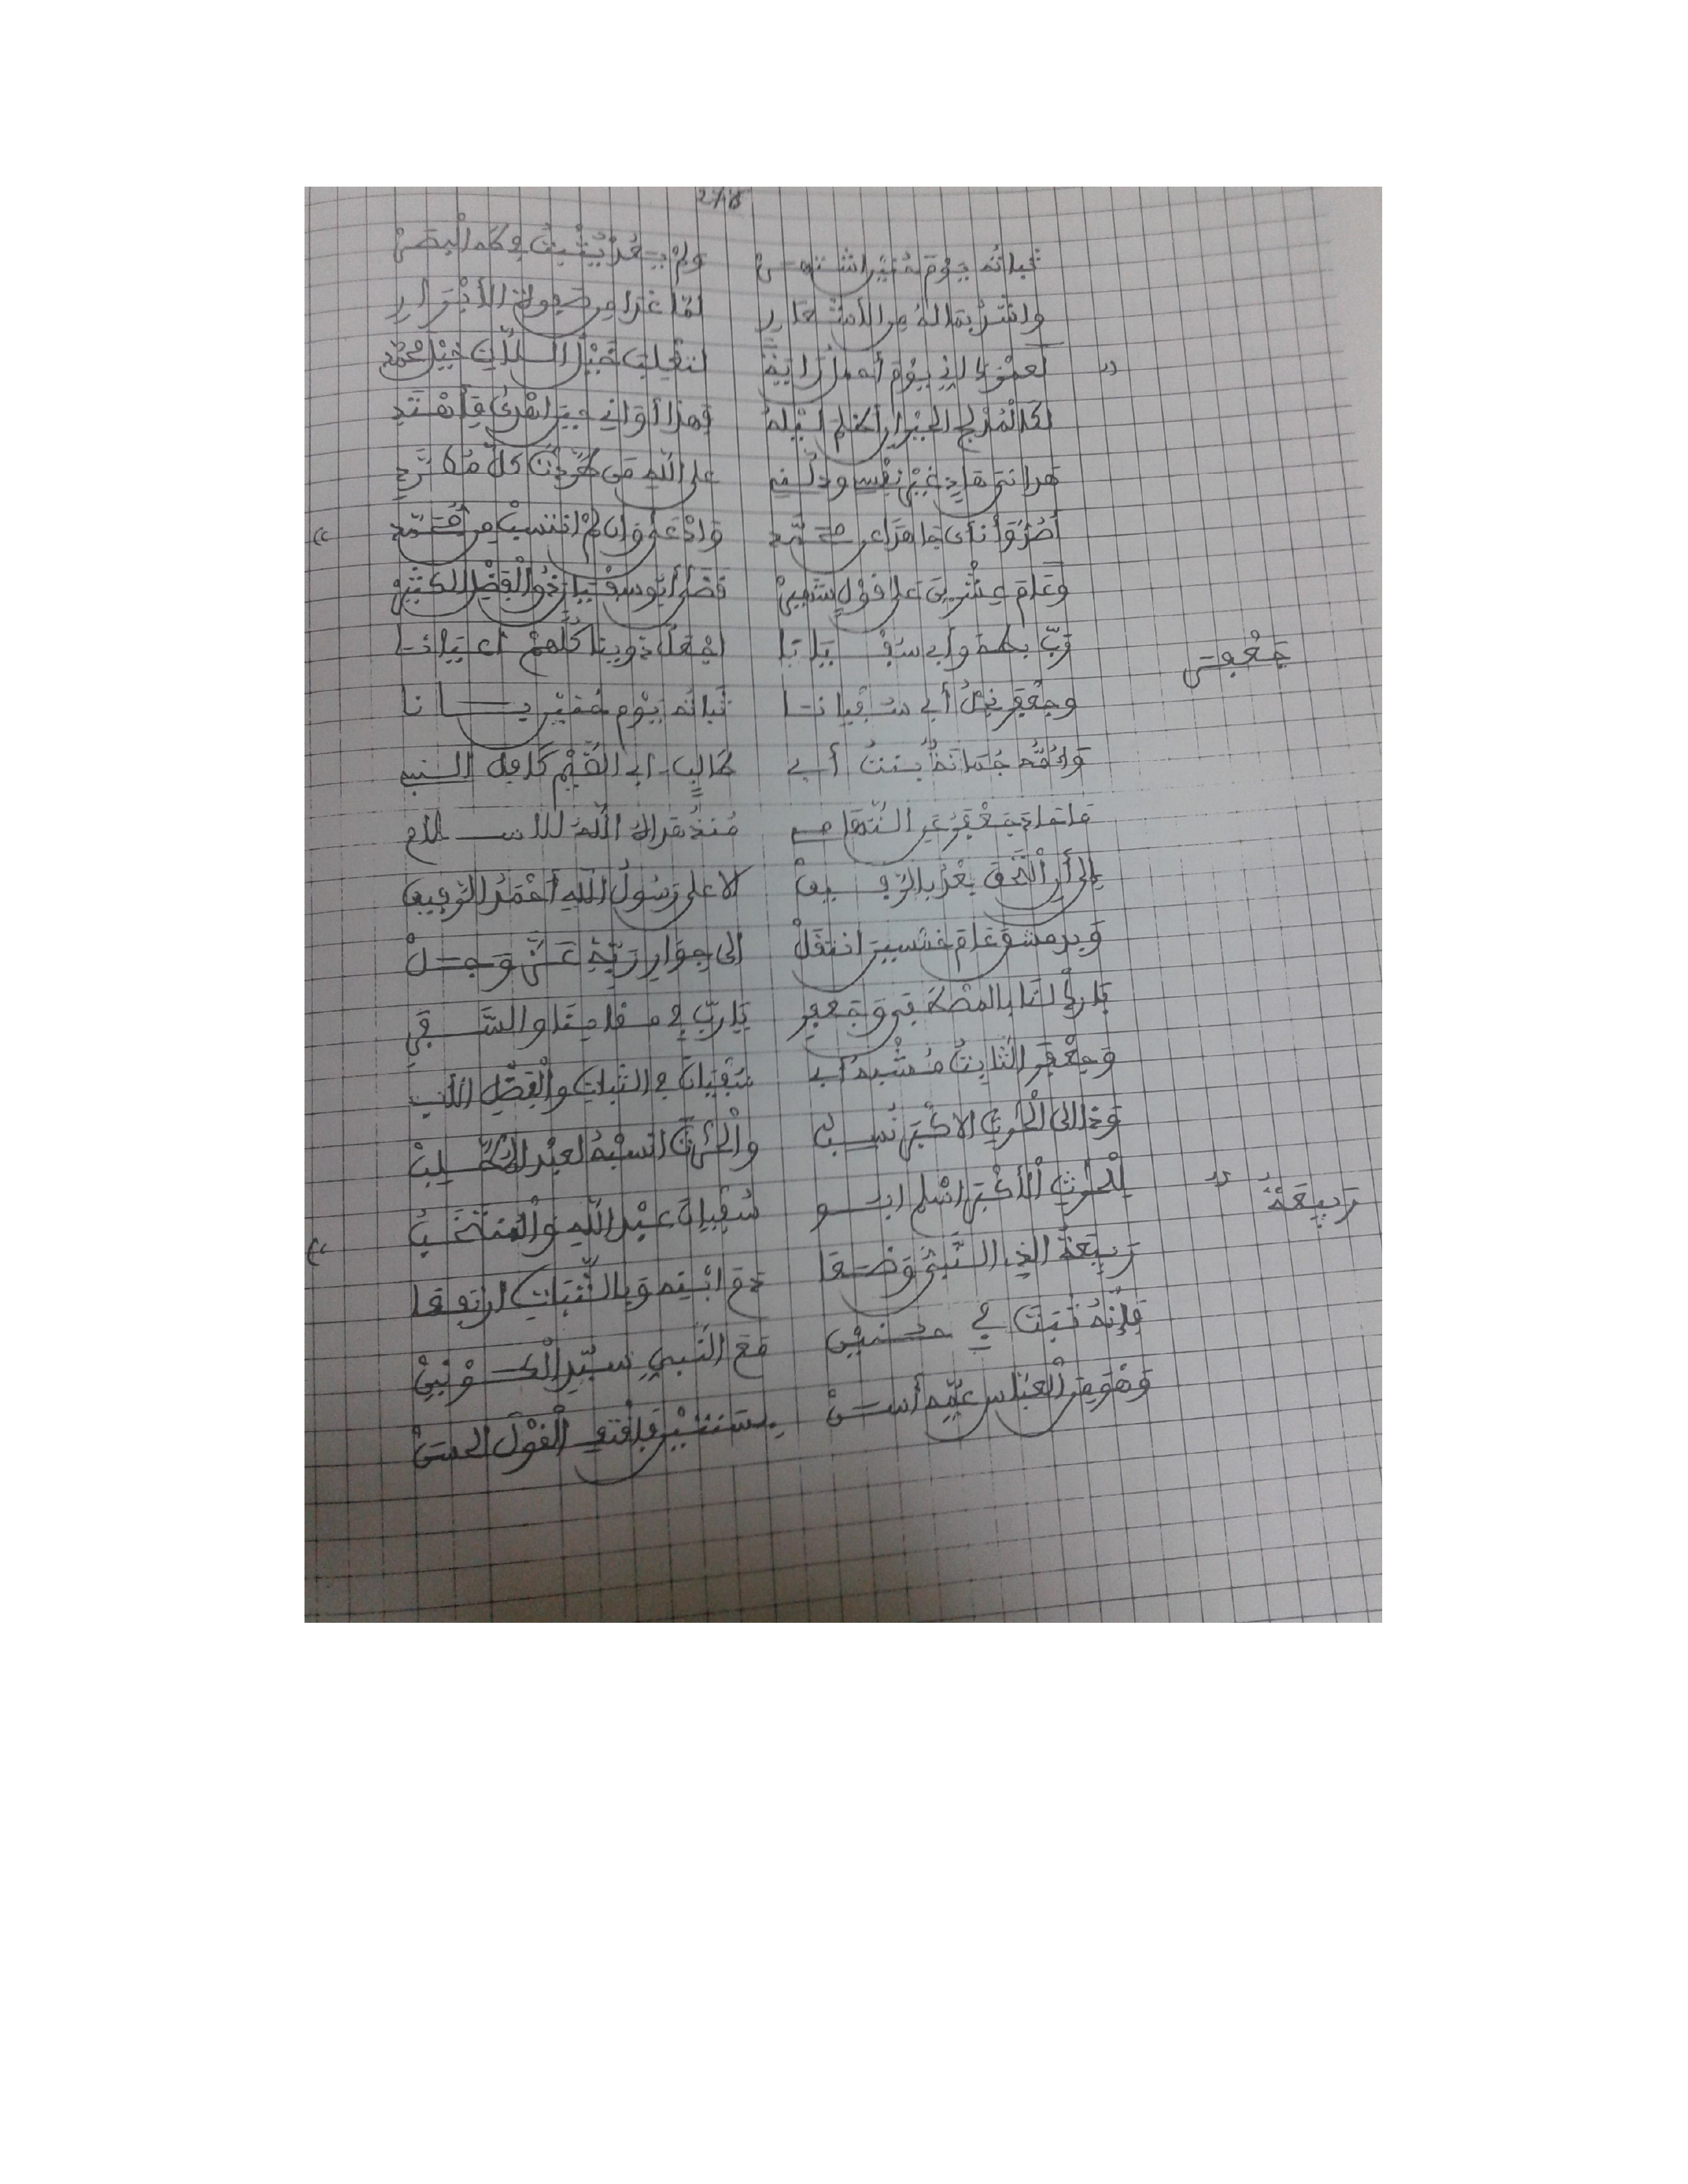 ثباته يوم حنين اشتهر ولم يعد يثبت في كم البصر
وانشد بقاله من الأشعار لما غدا من صفوة الأبرار
لعمرك اني يوم أحمل راية لتغلب خيل اللات خيل محمد
لكالمدلج الحيران أظلم ليله فهذا أواني حين اهدى فأهتدي
هداني هاد غير نفسي ودلني على الله من طردت كل مطرد
أصد وأنأى جاهدا عن محمد وادعى وان لم انتسب من محمد
وعام عشرين على قول شهير قضى أبو سفيان ذو الفضل الكثير
رب بطه وأبي سفيانا اجعل ذوينا كلهم أعيانا
جعفر
وجعفر نجل أبي سفيانا ثباته يوم حنين بانا
وأمه جمانة بنت أبي طالب ابي القيم كامل النسب
ما نماد جعفر عن التهامي منذ هداه الله للاسلام
إلى أن التحق بعد بالرفيق الاعلى رسول الله أحمد الرفيق
وبدمشق عام خمسين انتقل الى جوار ربه عز وجل
يا رب لنا بالمصطفى وجعفر يا رب في مقامنا والسفر
وجعفر الثابت مشبه أبي سفيان في الثبات والفضل الأب
وذا إلى الحرث الاكبر نسب والحرث انسبه لعبد المطلب
للحرث الأكبر اسلم ابو سفيان عبد الله والمنتخب
ربيعة
ربيعة الذي النبي وضعا دم ابنه وبالثبات ارتفعا
فإنه ثبت في حنين مع النبي سيد الكونين
وهو من العباس عمه أسن بسنتين فاقتف القول الحسن